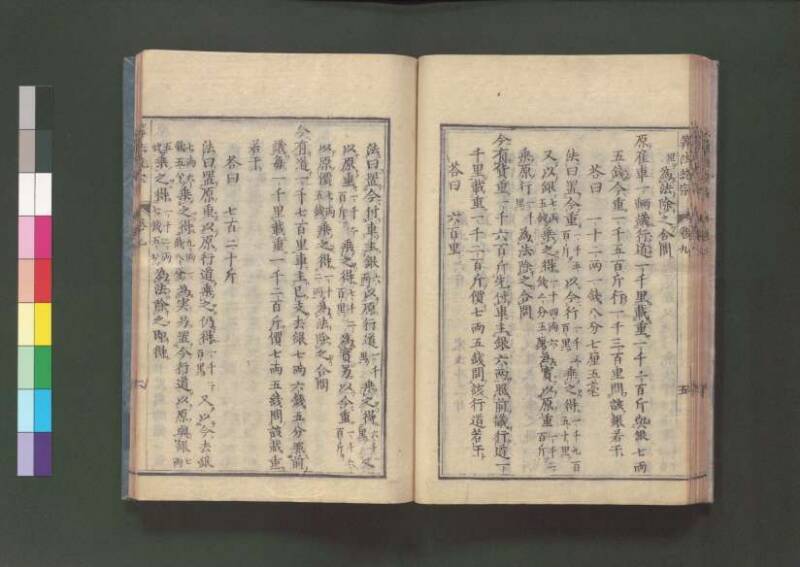 里為法除之合問
原雇車一輛議行道一千里載重一千二百斤與銀七兩
五錢今重一千五百斤行一千三百里問該銀若干
荅曰 一十二兩一錢八分七厘五毫
法曰置今重一千五百斤以今行一千三百里乘之得一千九百五十里
又以銀七兩五錢乘之得一十四兩六錢二分五厘為實以原重一千二百斤
乘原行一千里為法除之合問
今有貨重一千六百斤先付車主銀六兩照前議行道一
千里載重一千二百斤價七兩五錢問該行道若干
荅曰 六百里
法曰置今付車主銀六兩以原行道一千里乘之得六千里又
以原重一千二百斤乘之得七千二百里為實另以今重一千六百斤
以原價七兩五錢乘之得一十二兩為法除之合問
今有道一千七百里車主已支去銀七兩六錢五分照前
議每一千里載重一千二百斤價七兩五錢問該載重
若干
荅曰 七百二十斤
法曰置原重以原行道乘之仍得一千二百里又以今去銀
七兩六錢五分乘之得九兩一錢八分為實另置今行道以原與銀七兩
五錢乘之得一十二兩七錢五分為法除之即得